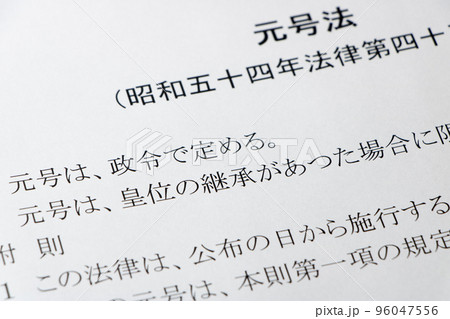 元号法
（昭和五十四年法律第四十
元号は、政令で定める。
元号は、皇位の継承があった場合に限
附 則
1 この法律は、公布の日から施行する
の元号は、本則第一項の規定
PIXTA
pixta.jp - 96047556